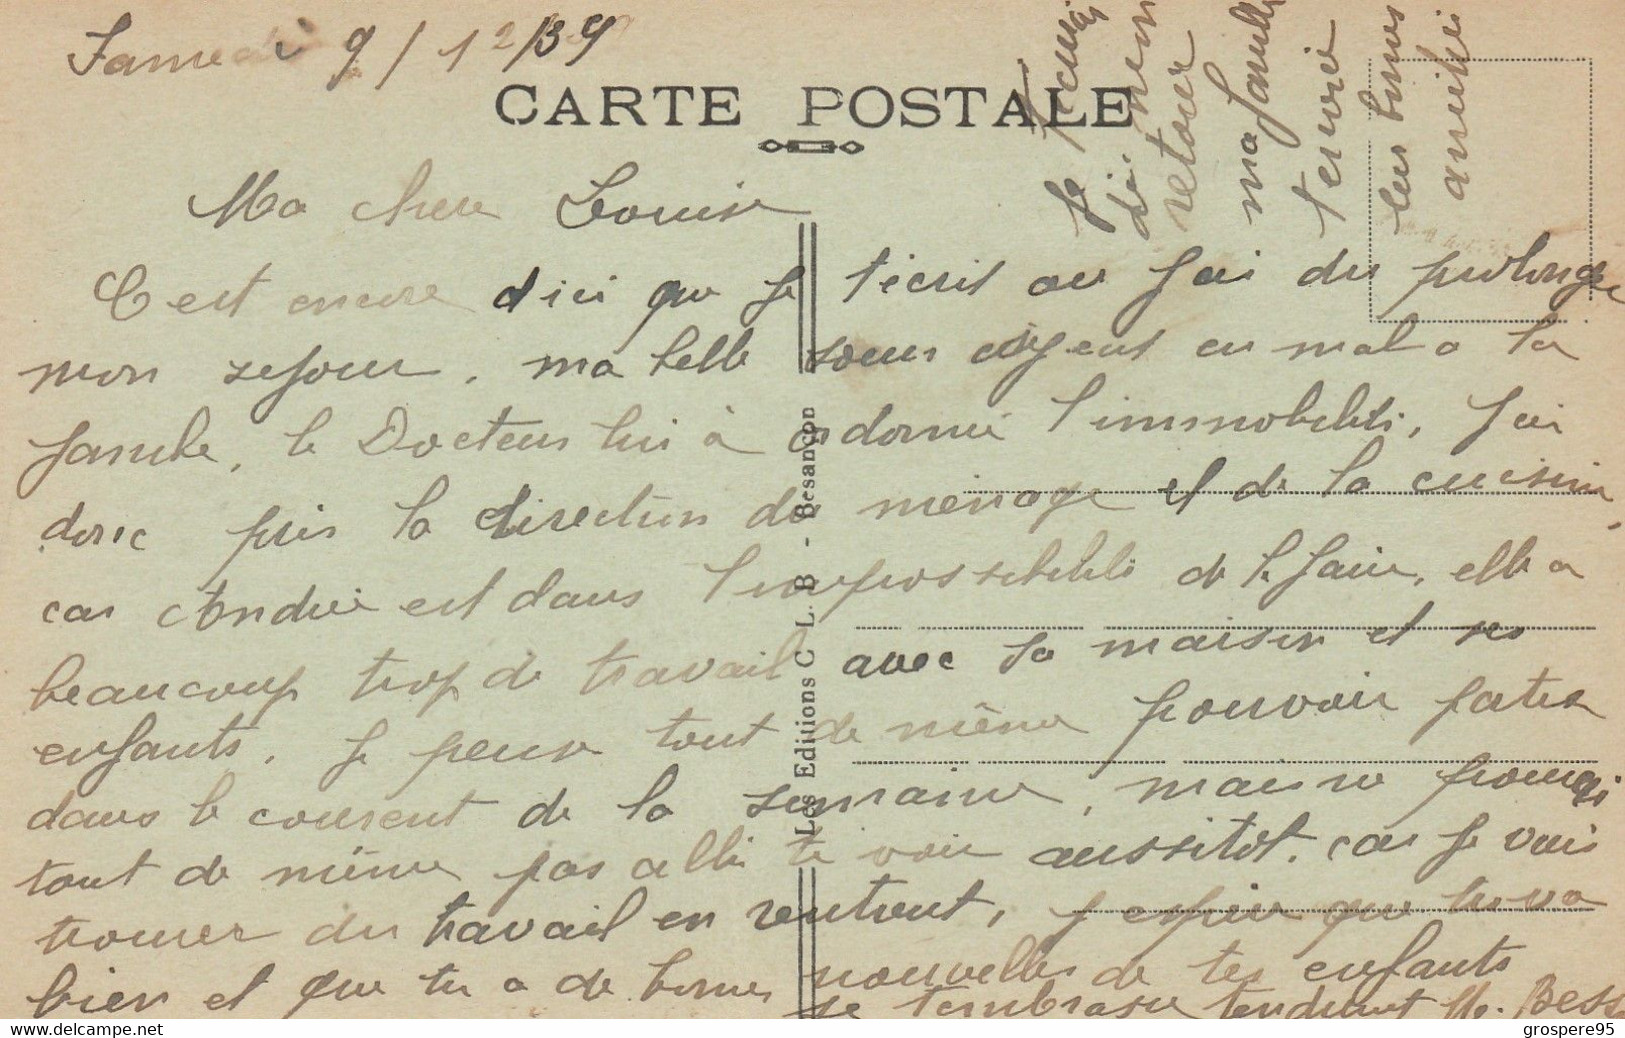 Samedi 9/12/39
CARTE POSTALE
Ma chere Louise
C est encore d ici que je t écrit ou j ai du prolonger
mon sejour. ma belle soeur ayent eu mal a la
jambe, le Docteur lui à ordonné l immobilité, j ai
donc pris la direction du ménage et de la cuisine,
car Andrée est dans l impossibilité de le faire, elle a
beaucoup trop de travail avec sa maison et ses
enfants. je pense tout de même pouvoir partir
dans le courent de la semaine, mais ne pourrai
tout de même pas allé te voir aussitot. car je vais
trouver du travail en rentrent, j espère que tu va
bien et que tu a de bonne nouvelles de tes enfants
je t embrasse tendrement M. Bess
je t écrirai
dé mon
retour
ma famille
t envoie
ses bonnes
amitiés
Les Editions C L. B - Besançon
www.delcampe.net
grospere95